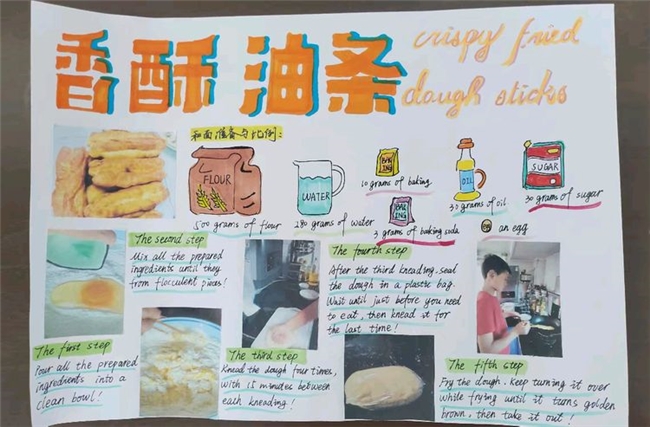 香酥油条
crispy fried
dough sticks
和面准备与比例:
FLOUR
500 grams of flour
WATER
280 grams of water
BAKING
10 grams of baking
BAKING
3 grams of baking soda
OIL
30 grams of oil
SUGAR
30 grams of sugar
an egg
The first step
Pour all the prepared
ingredients into a
clean bowl!
The second step
Mix all the prepared
ingredients until they
from flocculent pieces!
The third step
Knead the dough four times,
with 15 minutes between
each kneading!
The fourth step
After the third kneading, seal
the dough in a plastic bag.
Wait until just before you need
to eat, then knead it for
the last time!
The fifth step
Fry the dough, keep turning it over
while frying until it turns golden
brown, then take it out!